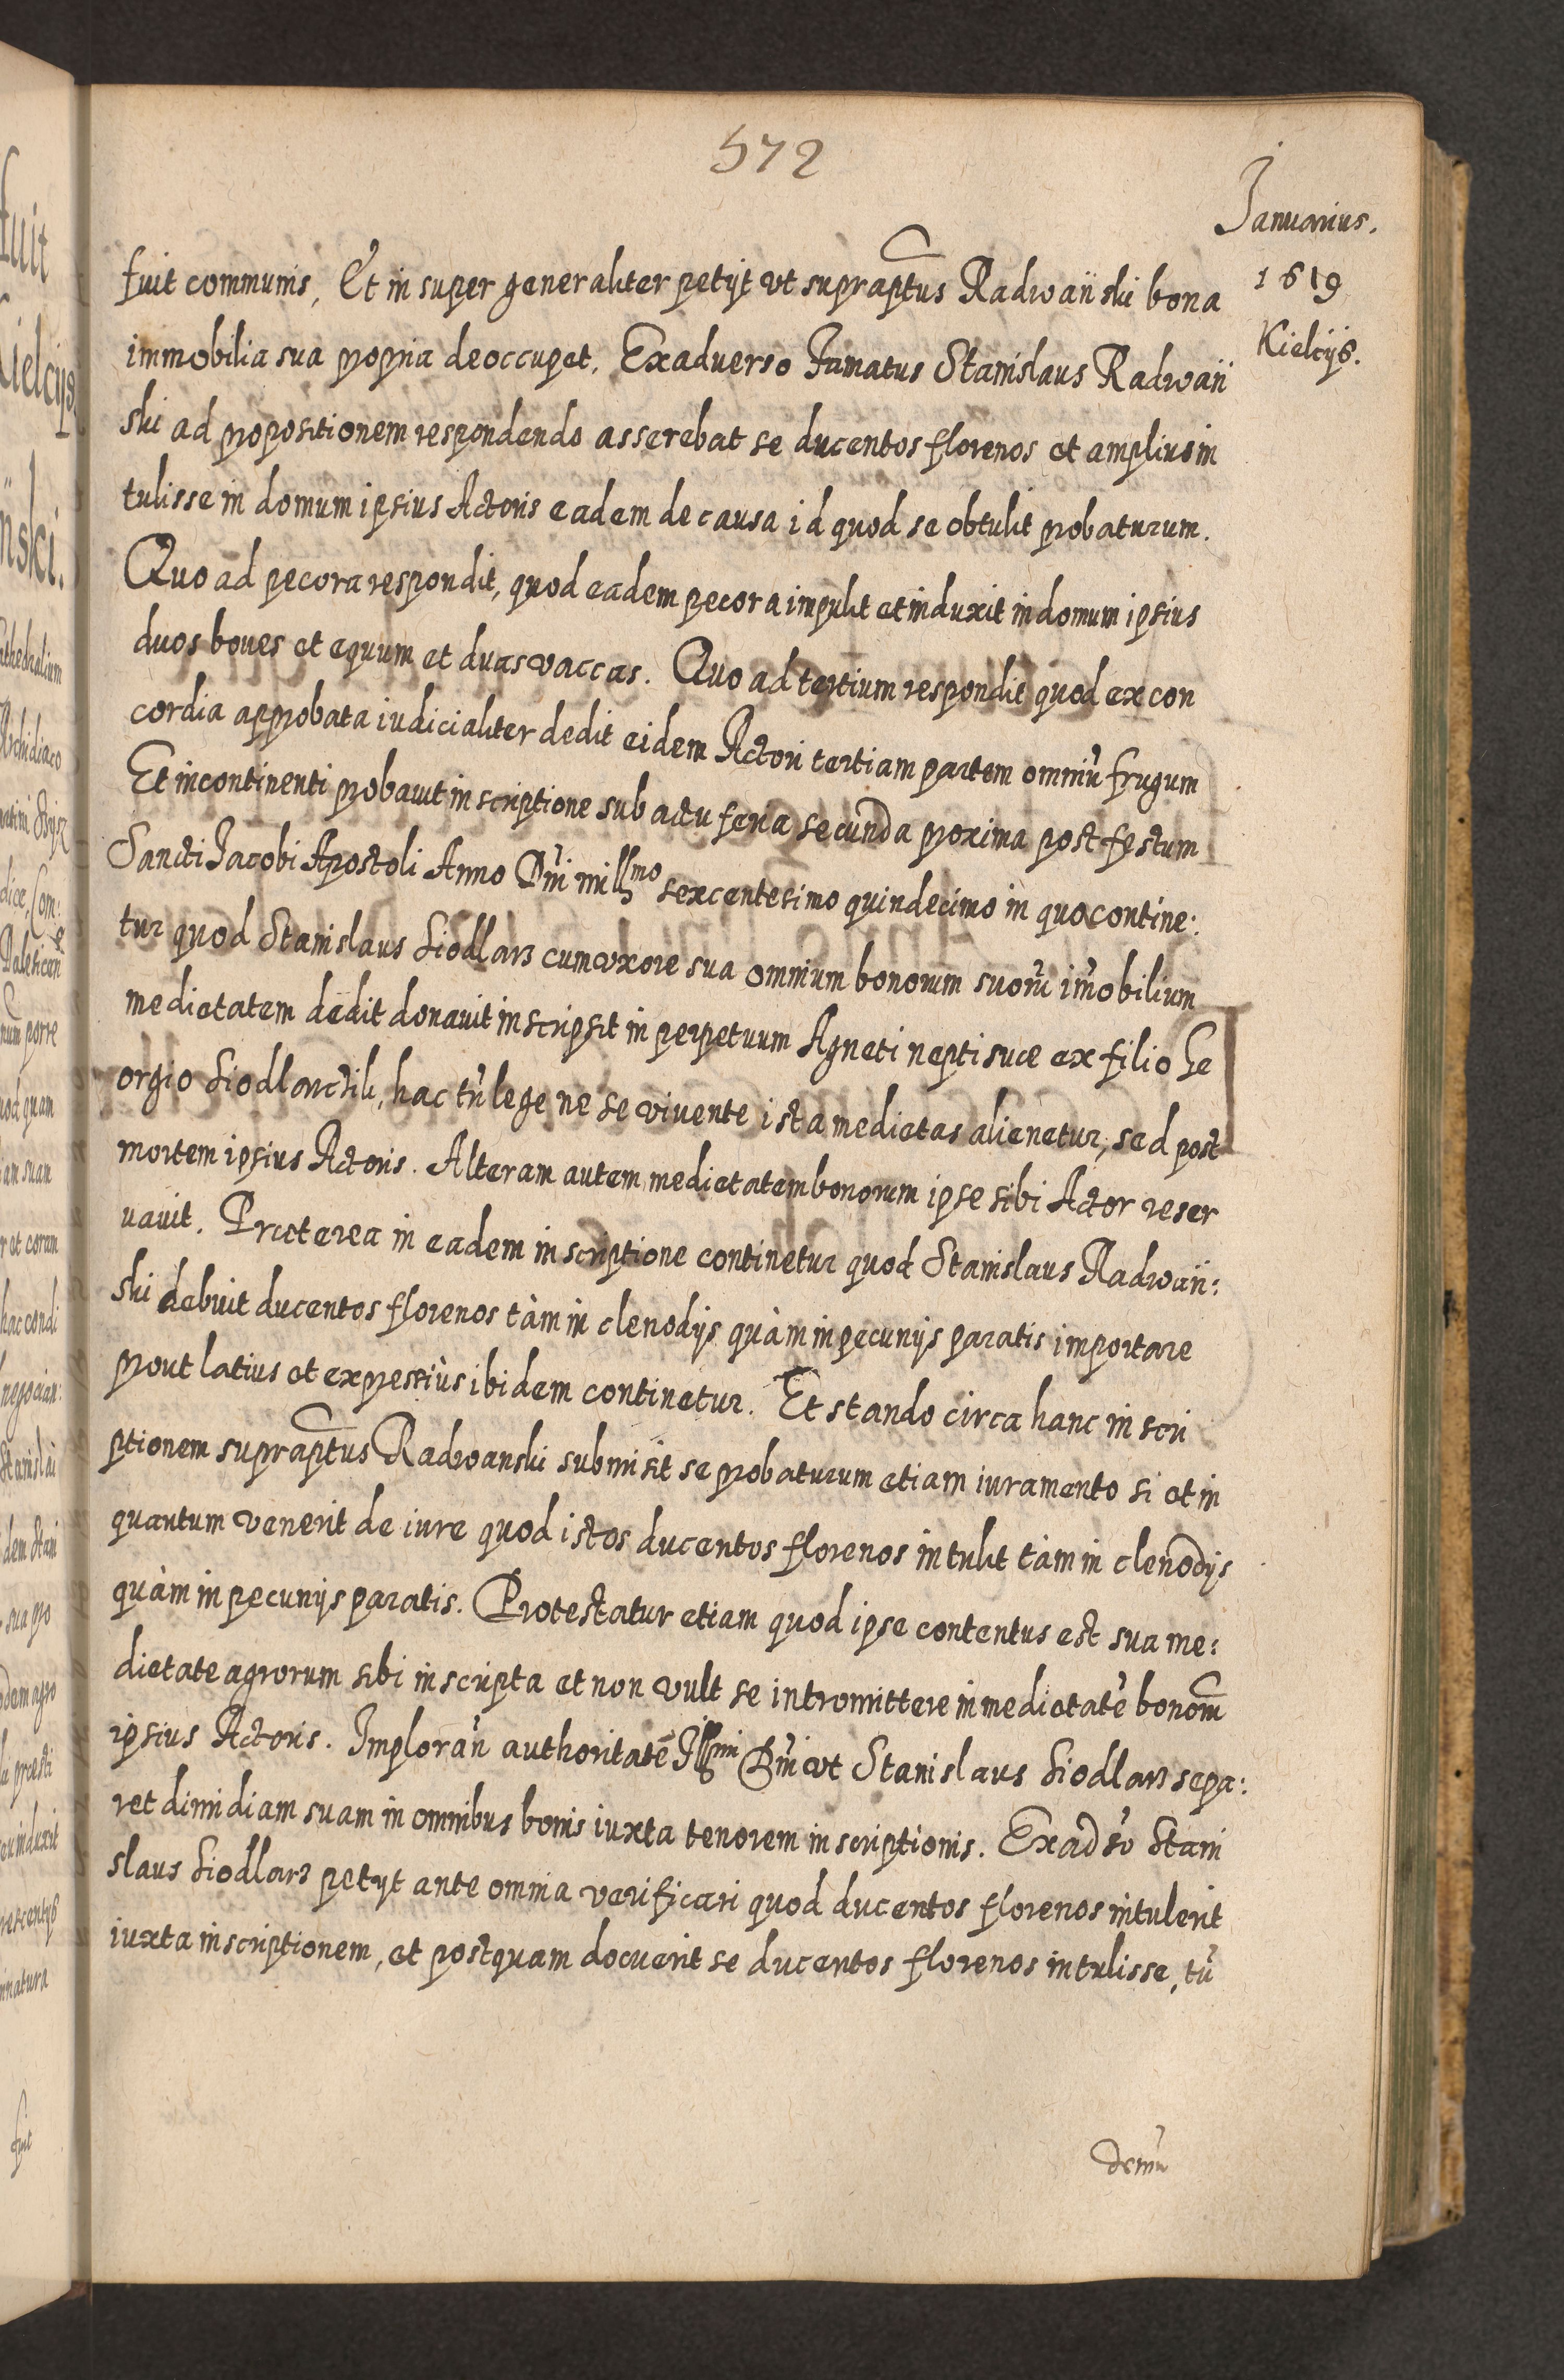 572
Januarius.
1619
Kielcijs.
fuit communis, Et in super generaliter petijt vt suprap̃tus Radwański bona
immobilia sua propria deoccupet. Exaduerso Famatus Stanislaus Radwań
ski ad propositionem respondendo asserebat se ducentos florenos et amplius in
tulisse in domum ipsius Actoris eadem de causa id quod se obtulit probaturum.
Quo ad pecora respondit, quod eadem pecora impulit et induxit in domum ipsius
duos boues et equum et duas vaccas. Quo ad tertium respondit quod ex con
cordia approbata iudicialiter dedit eidem Actori tertiam partem omniũ frugum
Et incontinenti probauit inscriptione sub actu feria secunda proxima post festum
Sancti Jacobi Apostoli Anno Dñi millmo sexcentesimo quindecimo in quo contine:
tur quod Stanislaus Siodlarz cum vxore sua omnium bonorum suorũ im̃obilium
medietatem dedit donauit inscripsit in perpetuum Agneti nepti suæ ex filio Ge
orgio Siodlarczik, hac tñ lege ne se viuente ista medietas alienetur, sed post
mortem ipsius Actoris. Alteram autem medietatem bonorum ipse sibi Actor reser
uauit. Præterea in eadem inscriptione continetur quod Stanislaus Radwań:
ski debuit ducentos florenos tàm in clenodijs quàm in pecunijs paratis importare
prout latius et expressiùs ibidem continetur. Et stando circa hanc inscri
ptionem suprap̃tus Radwanski submisit se probaturum etiam iuramento si et in
quantum venerit de iure quod istos ducentos florenos intulit tàm in clenodijs
quàm in pecunijs paratis. Protestatur etiam quod ipse contentus est sua me:
dietate agrorum sibi inscripta et non vult se intromittere in medietatẽ bonorũ
ipsius Actoris. Implorañ authoritatẽ Illmi Dñi vt Stanislaus Siodlarz sepa:
ret dimidiam suam in omnibus bonis iuxta tenorem inscriptionis. Exadũso Stani
slaus Siodlarz petijt ante omnia verificari quod ducentos florenos intulerit
iuxta inscriptionem, et postquam docuerit se ducentos florenos intulisse, tũ
demũ